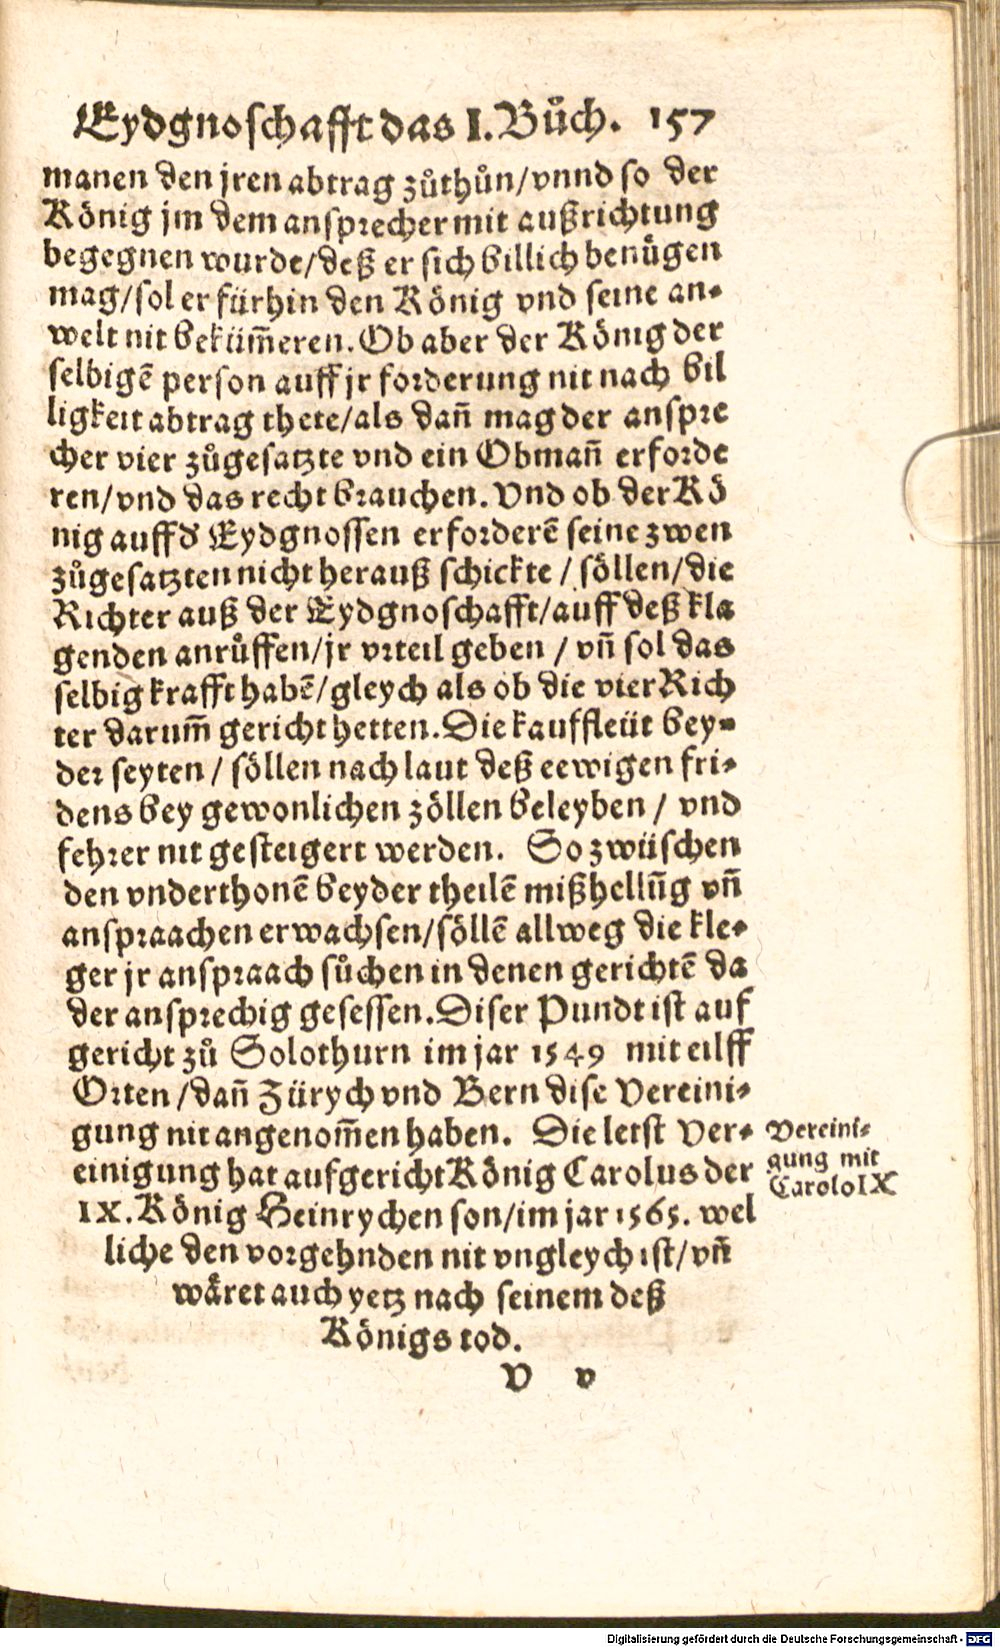 Eydgnoschafft das I. Bůch. 157
manen den jren abtrag zůthůn/vnnd so der
König jm dem ansprecher mit außrichtung
begegnen wurde/deß er sich billich benügen
mag/sol er fürhin den König vnd seine an-
welt nit beküm̃eren. Ob aber der König der
selbigẽ person auff jr forderung nit nach bil
ligkeit abtrag thete/als dañ mag der anspre
cher vier zůgesatzte vnd ein Obmañ erforde
ren/vnd das recht brauchen. Vnd ob der Kö
nig auff d' Eydgnossen erforderẽ seine zwen
zůgesatzten nicht herauß schickte / söllen/die
Richter auß der Eydgnoschafft/auff deß kla
genden anrůffen/jr vrteil geben / vñ sol das
selbig krafft habẽ/gleych als ob die vier Rich
ter darum̃ gericht hetten. Die kauffleüt bey-
der seyten / söllen nach laut deß eewigen fri-
dens bey gewonlichen zöllen beleyben / vnd
fehrer nit gesteigert werden. So zwüschen
den vnderthonẽ beyder theilẽ mißhellũg vñ
anspraachen erwachsen/söllẽ allweg die kle-
ger jr anspraach sůchen in denen gerichtẽ da
der ansprechig gesessen. Diser Pundt ist auf
gericht zů Solothurn im jar 1549 mit eilff
Orten /dañ Zürych vnd Bern dise Vereini-
gung nit angenom̃en haben. Die letst Ver-
einigung hat aufgericht König Carolus der
IX. König Heinrychen son/im jar 1565. wel
liche den vorgehnden nit vngleych ist/vñ
wäret auch yetz nach seinem deß
Königs tod.
V v
Vereini-
gung mit
Carolo IX
Digitalisierung gefördert durch die Deutsche Forschungsgemeinschaft - DFG